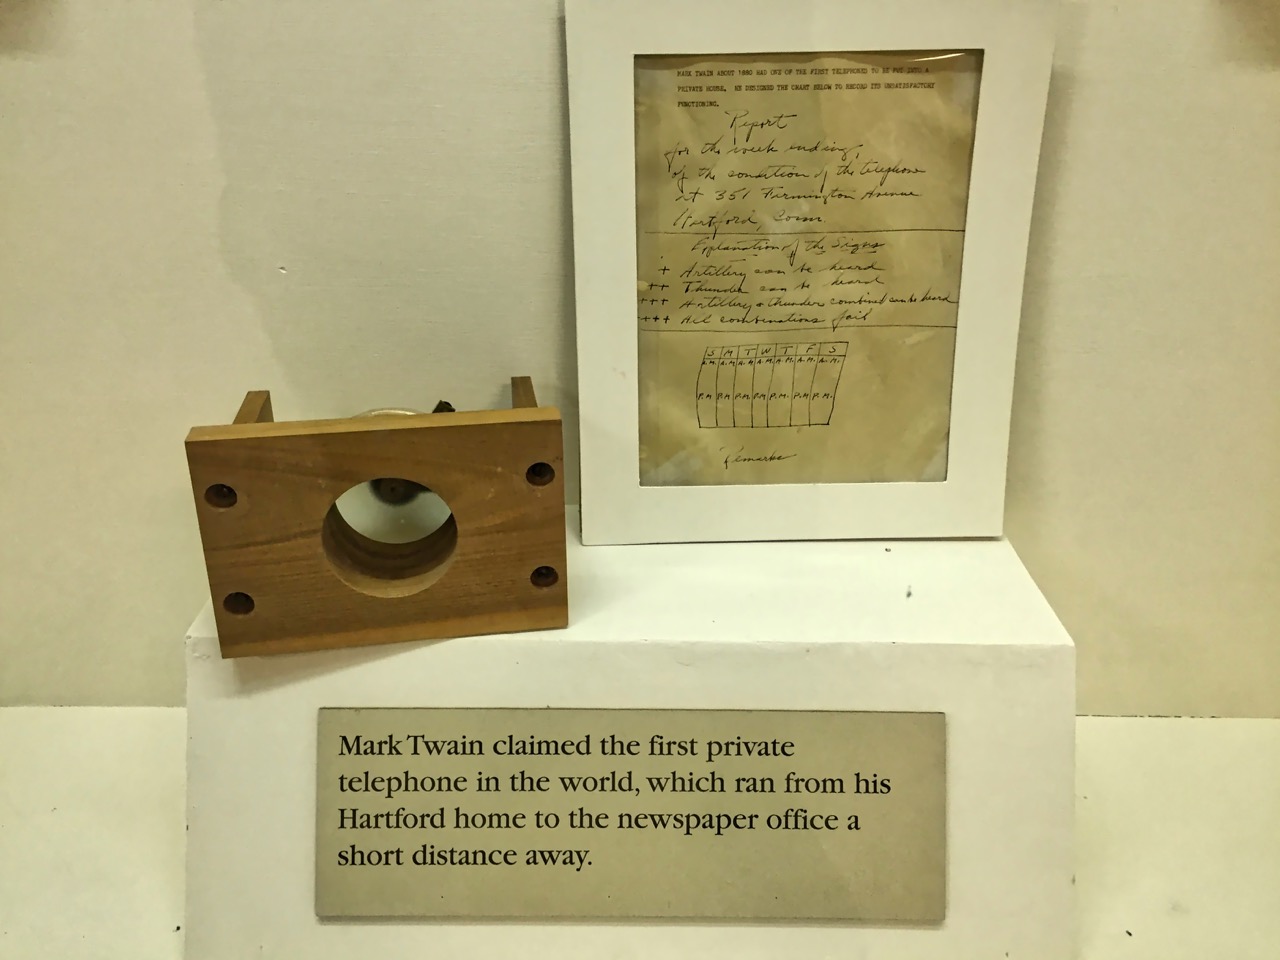 MARK TWAIN ABOUT 1880 HAD ONE OF THE FIRST TELEPHONES TO BE PUT INTO A
PRIVATE HOUSE. HE DESIGNED THE CHART BELOW TO RECORD ITS UNSATISFACTORY
FUNCTIONING.
Report
for the week ending,
of the condition of the telephone
at 351 Farmington Avenue
Hartford, Conn.
Explanation of the Signs
+ Artillery can be heard
++ Thunder can be heard
+++ Artillery & thunder combined can be heard
++++ All combinations fail
S M T W T F S
A.M. A.M. A.M. A.M. A.M. A.M. A.M.
P.M. P.M. P.M. P.M. P.M. P.M. P.M.
Remarks
Mark Twain claimed the first private
telephone in the world, which ran from his
Hartford home to the newspaper office a
short distance away.